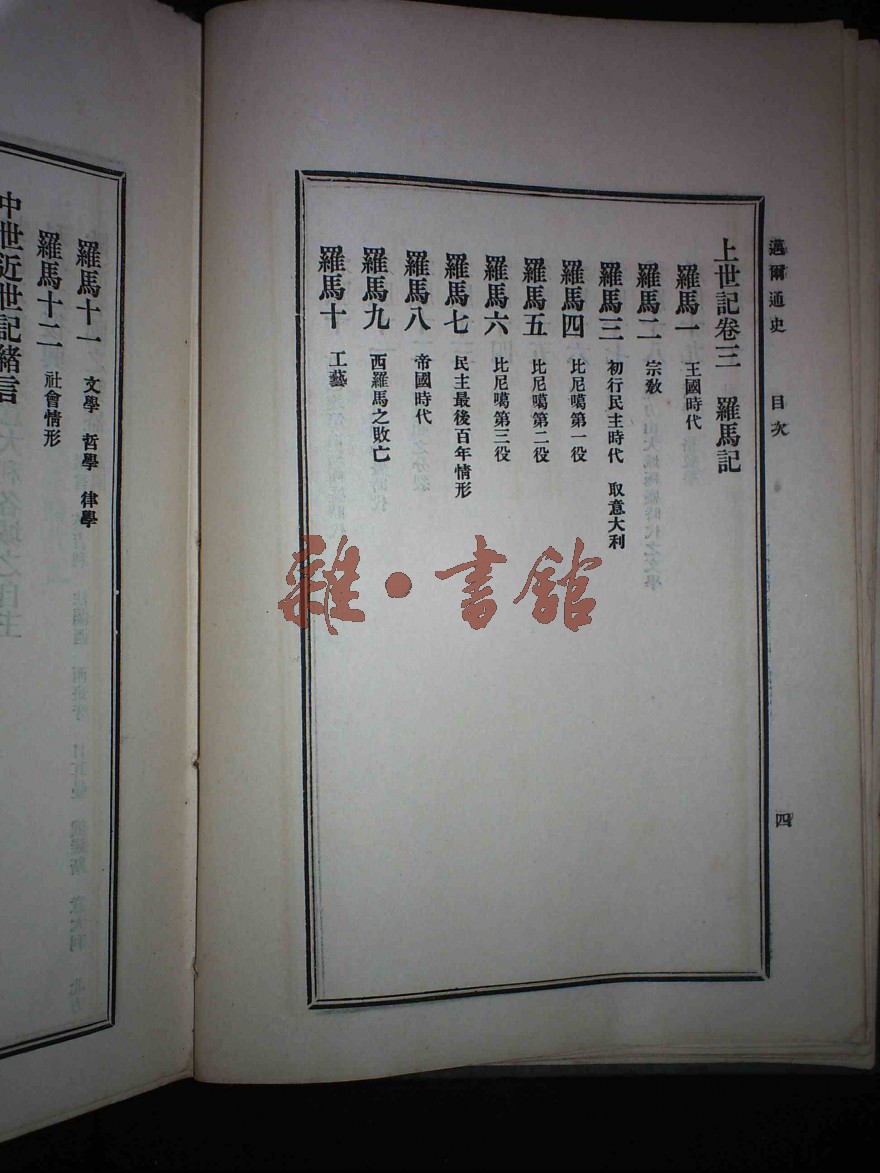 邁爾通史　目次
四
上世記卷三　羅馬記
羅馬一　王國時代
羅馬二　宗敎
羅馬三　初行民主時代　取意大利
羅馬四　比尼噶第一役
羅馬五　比尼噶第二役
羅馬六　比尼噶第三役
羅馬七　民主最後百年情形
羅馬八　帝國時代
羅馬九　西羅馬之敗亡
羅馬十　工藝
羅馬十一　文學　哲學　律學
羅馬十二　社會情形
中世近世記緒言
雜·書館